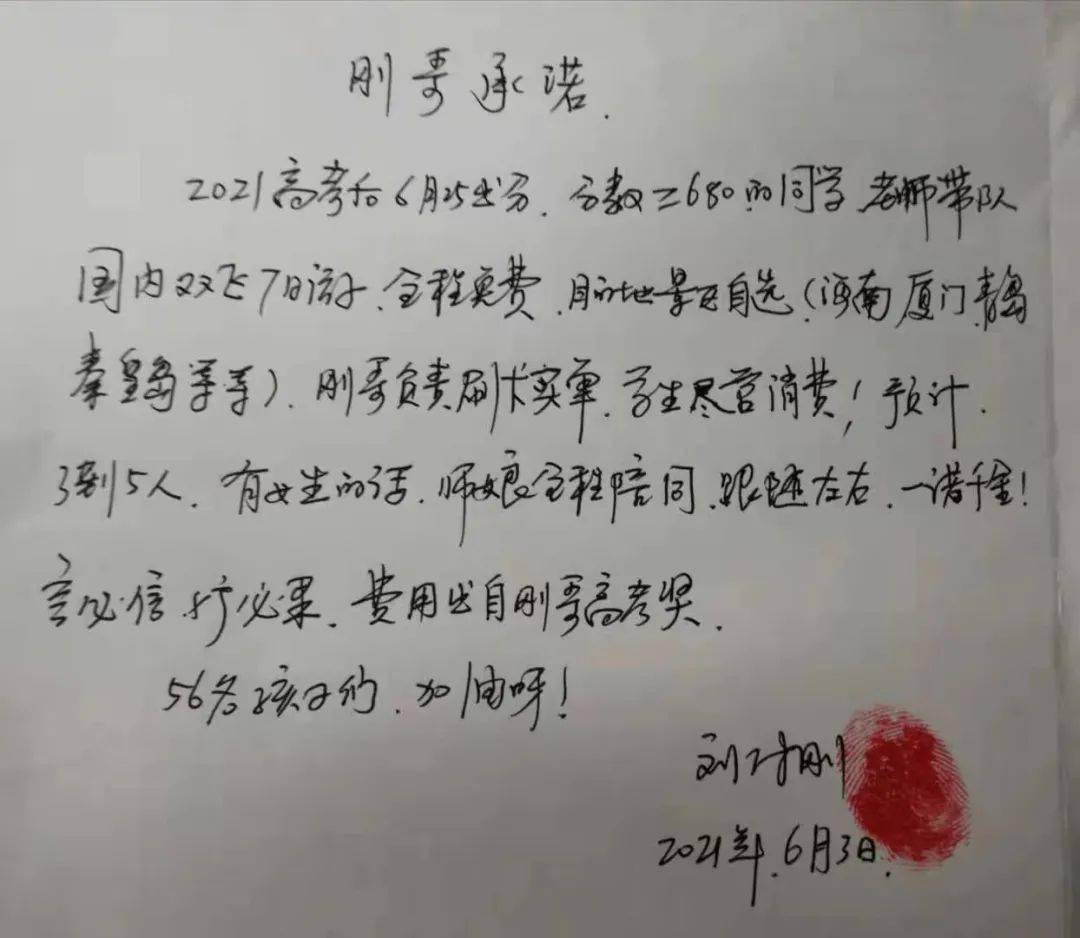 刚哥承诺.
2021高考后6月25出分.分数≥680的同学老师带队
国内双飞7日游.全程免费.目的地景区自选(海南厦门青岛
秦皇岛等等).刚哥负责刷卡买单.学生尽管消费!预计.
3到5人.有女生的话.师娘全程陪同.跟随左右.一诺千金!
言必信.行必果.费用出自刚哥高考奖.
56名孩子们.加油呀!
刘 刚
2021年.6月3日.